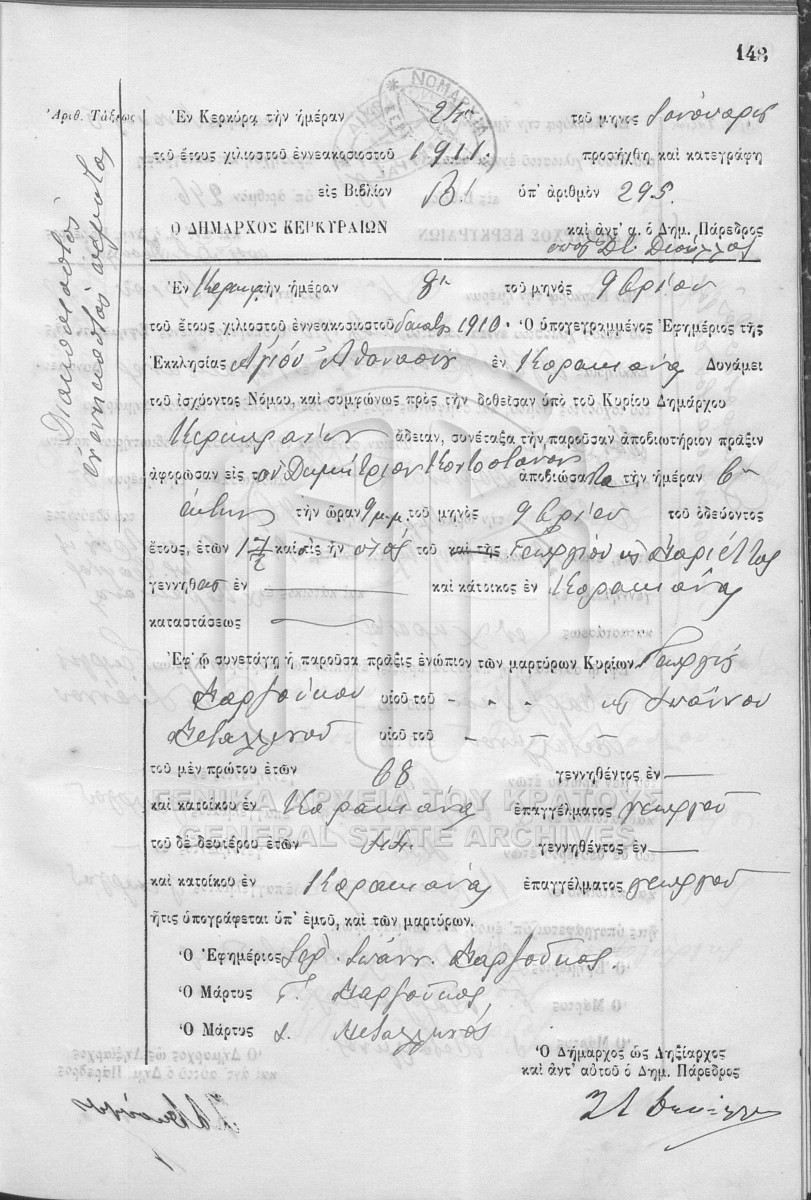 148
Ἀριθ. Τάξεως
Ἐν Κερκύρᾳ τὴν ἡμέραν 24ην τοῦ μηνὸς Ἰανουαρίου
τοῦ ἔτους χιλιοστοῦ ἐννεακοσιοστοῦ 1911. προσήχθη καὶ κατεγράφη
εἰς Βιβλίον Β! ὑπ' ἀριθμὸν 295.
Ο ΔΗΜΑΡΧΟΣ ΚΕΡΚΥΡΑΙΩΝ καὶ ἀντ' α. ὁ Δημ. Πάρεδρος
Ἐν τὴν ἡμέραν 8η τοῦ μηνὸς 9βρίου
τοῦ ἔτους χιλιοστοῦ ἐννεακοσιοστοῦ δεκάτου 1910. Ὁ ὑπογεγραμμένος Ἐφημέριος τῆς
Ἐκκλησίας Ἁγίου Ἀθανασίου ἐν Κορακιάνᾳ Δυνάμει
τοῦ ἰσχύοντος Νόμου, καὶ συμφώνως πρὸς τὴν δοθεῖσαν ὑπὸ τοῦ Κυρίου Δημάρχου
Κερκυραίων ἄδειαν, συνέταξα τὴν παροῦσαν ἀποβιωτήριον πρᾶξιν
ἀφορῶσαν εἰς τὸν Δημήτριον Κοντοστάνον ἀποβιώσαντα τὴν ἡμέραν 6η
ἕκτην τὴν ὥραν 9 μ.μ. τοῦ μηνὸς 9βρίου τοῦ ὁδεύοντος
ἔτους, ἐτῶν καὶ εἰς ἣν υἱὸς τοῦ καὶ τῆς Γεωργίου κ Μαριέττας
γεννηθεὶς ἐν καὶ κάτοικος ἐν Κορακιάνᾳ
καταστάσεως
Ἐφ' ᾧ συνετάγη ἡ παροῦσα πρᾶξις ἐνώπιον τῶν μαρτύρων Κυρίων Γεωργίου
Βαρζούκου υἱοῦ τοῦ κ Ἰωάννου
Μεταλληνοῦ υἱοῦ τοῦ
τοῦ μὲν πρώτου ἐτῶν 68 γεννηθέντος ἐν
καὶ κατοίκου ἐν Κορακιάνᾳ ἐπαγγέλματος γεωργοῦ
ΓΕΝΙΚΑ ΑΡΧΕΙΑ ΤΟΥ ΚΡΑΤΟΥΣ
GENERAL STATE ARCHIVES
τοῦ δὲ δευτέρου ἐτῶν 44. γεννηθέντος ἐν
καὶ κατοίκου ἐν Κορακιάνᾳ ἐπαγγέλματος γεωργοῦ
ἥτις ὑπογράφεται ὑπ' ἐμοῦ, καὶ τῶν μαρτύρων.
Ὁ Ἐφημέριος Ἰερ. Ἰωάνν. Βαρζούκος
Ὁ Μάρτυς Γ. Βαρζούκος
Ὁ Μάρτυς Ι. Μεταλληνός
Ὁ Δήμαρχος ὡς Ληξίαρχος
καὶ ἀντ' αὐτοῦ ὁ Δημ. Πάρεδρος